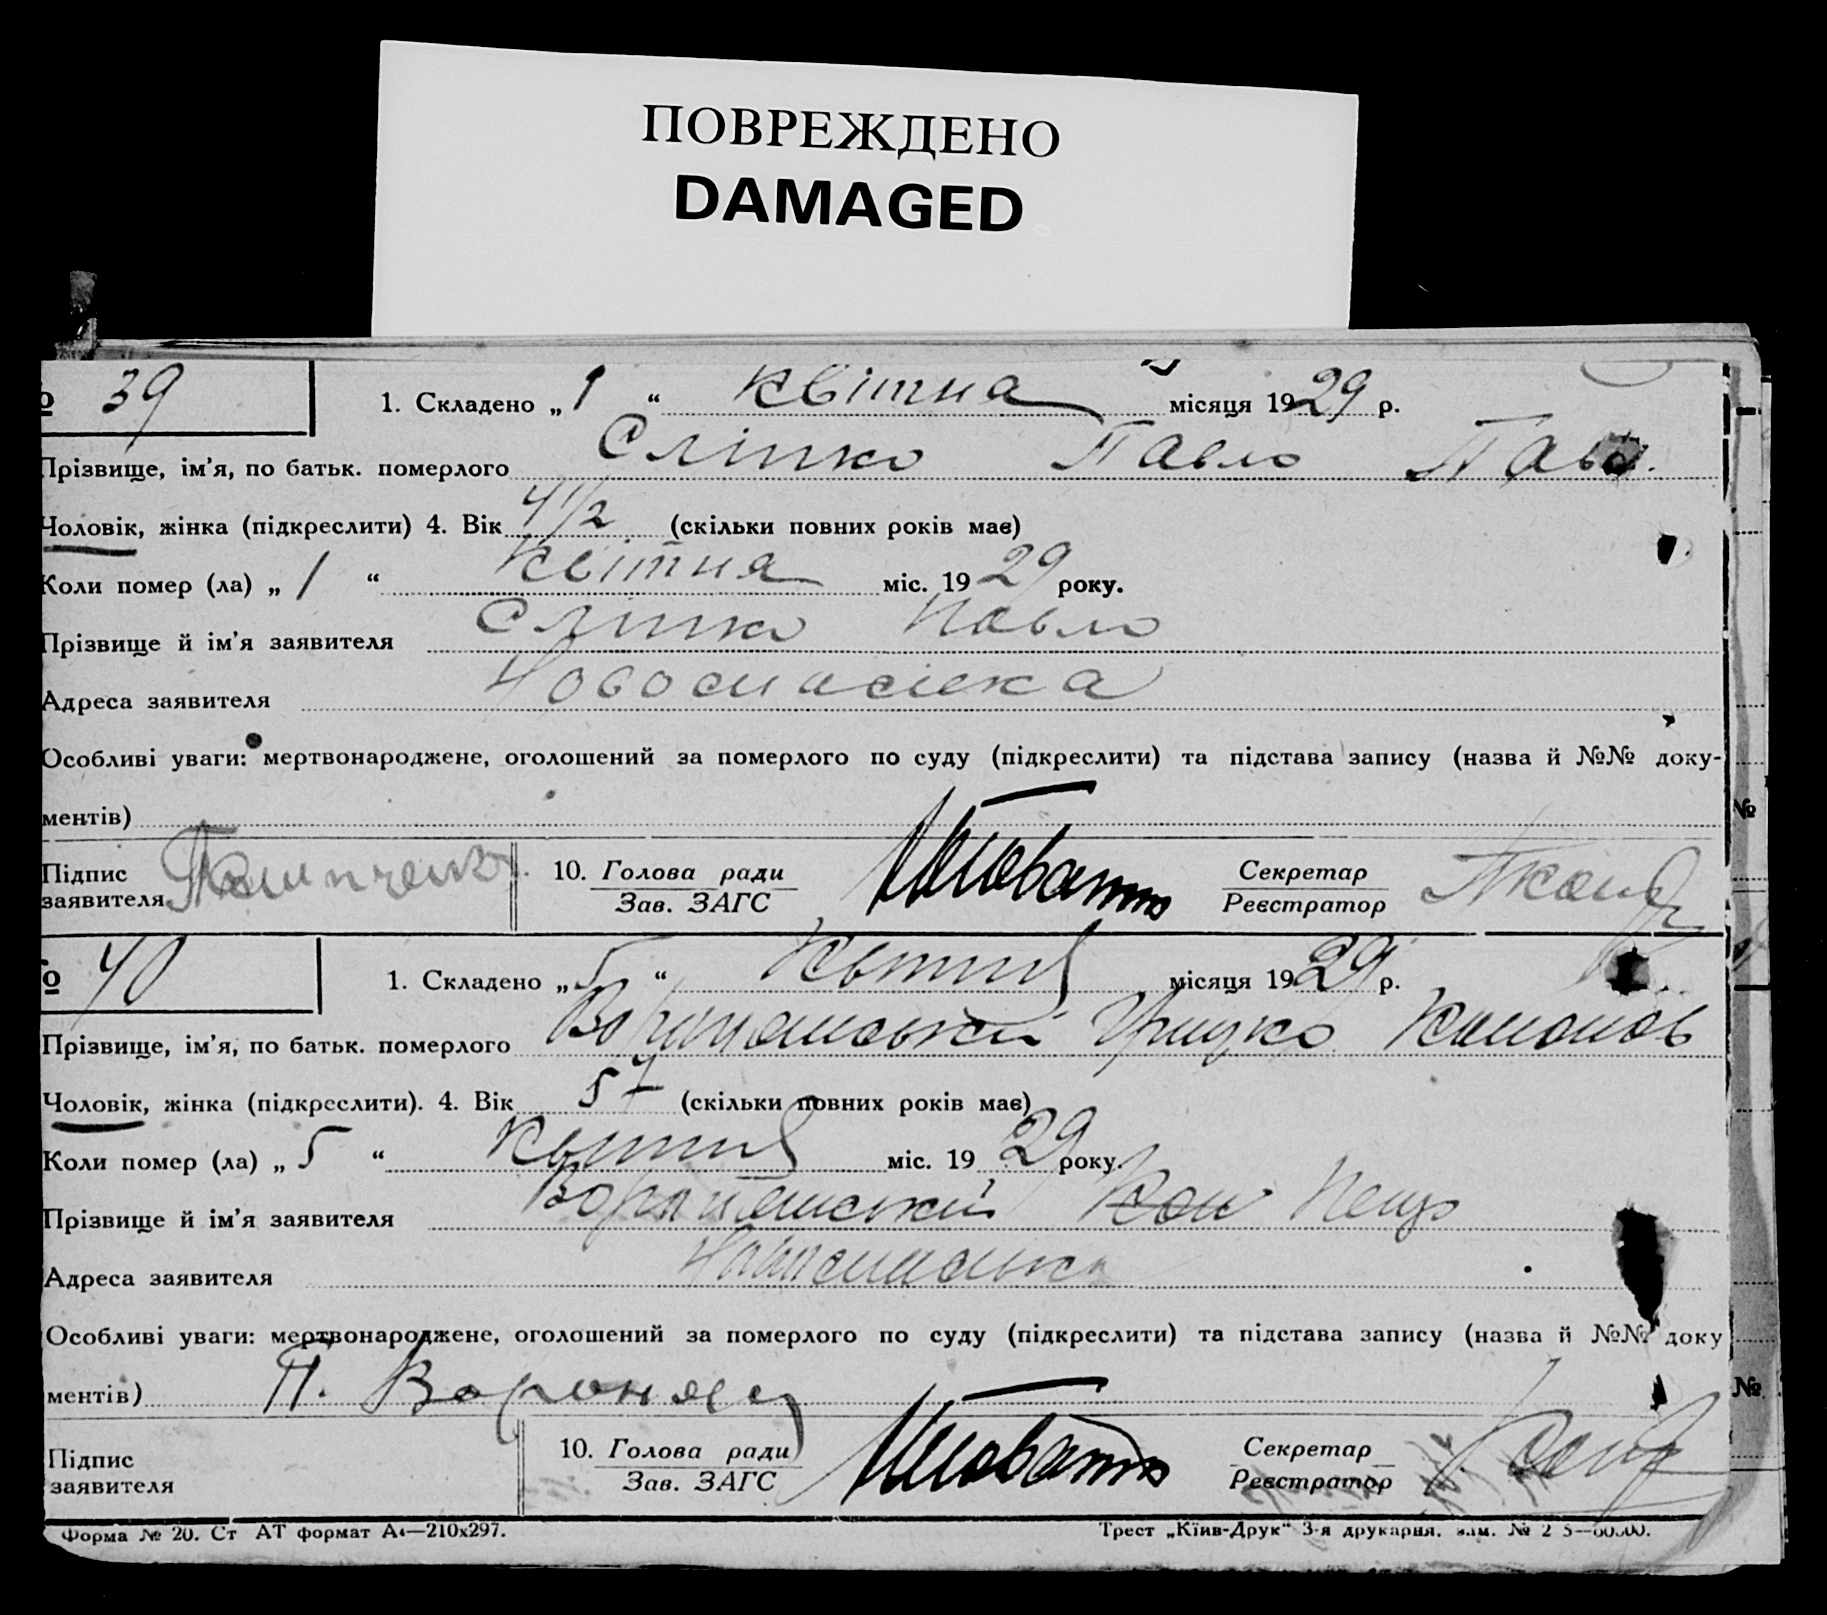 ПОВРЕЖДЕНО
DAMAGED
№ 39
1. Складено „1“ квітня місяця 1929 р.
Прізвище, ім'я, по батьк. померлого Сліпко Павло Пав.
Чоловік, жінка (підкреслити) 4. Вік 4 1/2 (скільки повних років має)
Коли помер (ла) „1“ Квітня міс. 1929 року.
Прізвище й ім'я заявителя Сліпко Павло
Адреса заявителя Новоспасівка
Особливі уваги: мертвонароджене, оголошений за померлого по суду (підкреслити) та підстава запису (назва й №№ доку-
ментів)
Підпис
заявителя
10. Голова ради
Зав. ЗАГС
Секретар
Реєстратор
№ 40
1. Складено „5“ Квітня місяця 1929 р.
Прізвище, ім'я, по батьк. померлого Грицко
Чоловік, жінка (підкреслити). 4. Вік 57 (скільки повних років має)
Коли помер (ла) „5“ Квітня міс. 1929 року.
Прізвище й ім'я заявителя
Адреса заявителя
Особливі уваги: мертвонароджене, оголошений за померлого по суду (підкреслити) та підстава запису (назва й №№ доку
ментів) П.
Підпис
заявителя
10. Голова ради
Зав. ЗАГС
Секретар
Реєстратор
Форма № 20. Ст АТ формат А4—210х297.
Трест „Київ-Друк“ 3-я друкарня. зам. №